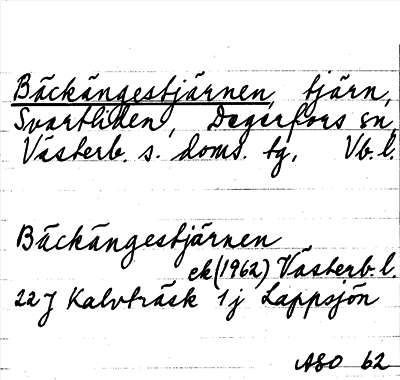 Bäckängestjärnen, tjärn,
Svartliden, Degerfors sn,
Västerb. s. doms. tg, Vb. l.
Bäckängestjärnen
ek (1962) Västerb. l.
22J Kalvträsk 1j Lappsjön
ASO 62